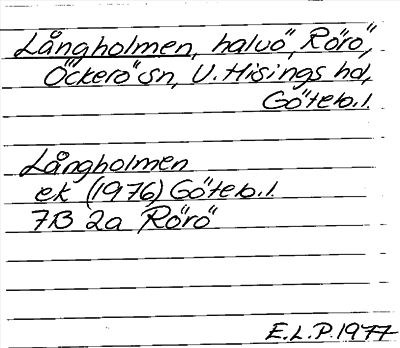 Långholmen, halvö, Rörö,
Öckerö sn, V. Hisings hd,
Göteb.l.
Långholmen
ek (1976) Göteb.l.
7B 2a Rörö
E.L.P. 1977